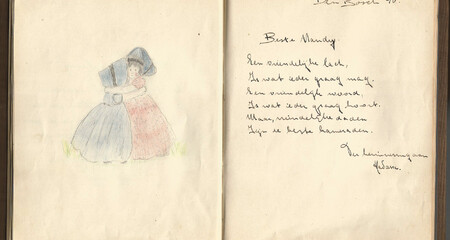 Den Bosch
Beste Mandy.
Een vriendelijke lach,
Is wat ieder graag mag.
Een vriendelijk woord,
Is wat ieder graag hoort.
Maar, vriendelijke daden
Zijn de beste kameraden.
Ter herinnering aan